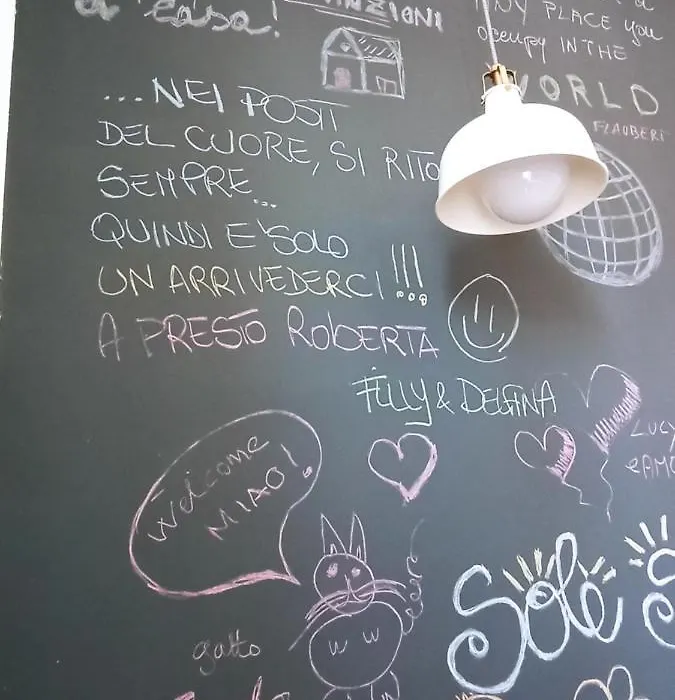 a casa!
NY PLACE you
occupy IN THE
WORLD
FLAUBERT
...NEI POSTI
DEL CUORE, SI RITO
SEMPRE...
QUINDI E' SOLO
UN ARRIVEDERCI!!!
A PRESTO ROBERTA
FILLY & DELFINA
LUCY
eAMO
Welcome
MIAO!
Sole
gatto